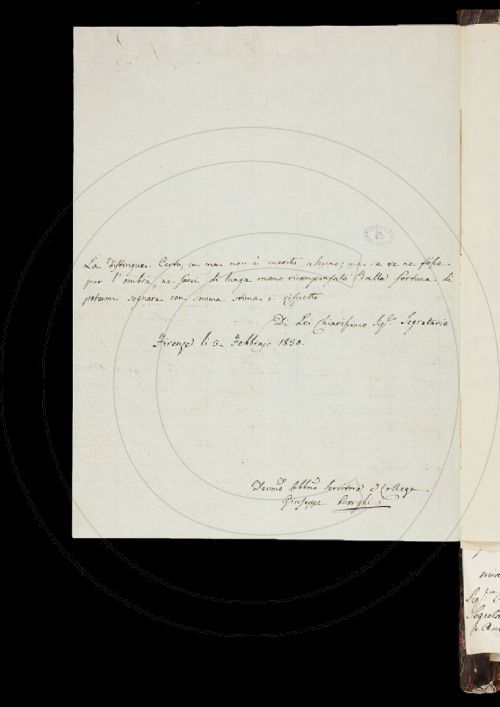 La distingue. Certo, in me non è merito alcuno; ma se ve ne fosse
pur l'ombra, ne sarei di lunga mano ricompensato dalla fortuna di
potermi segnare con somma stima e rispetto
Di Lei Chiarissimo Sig.r Segretario
Firenze li 3. Febbrajo 1830.
Devmo Obbmo Servitore e Collega
Giuseppe Borghi